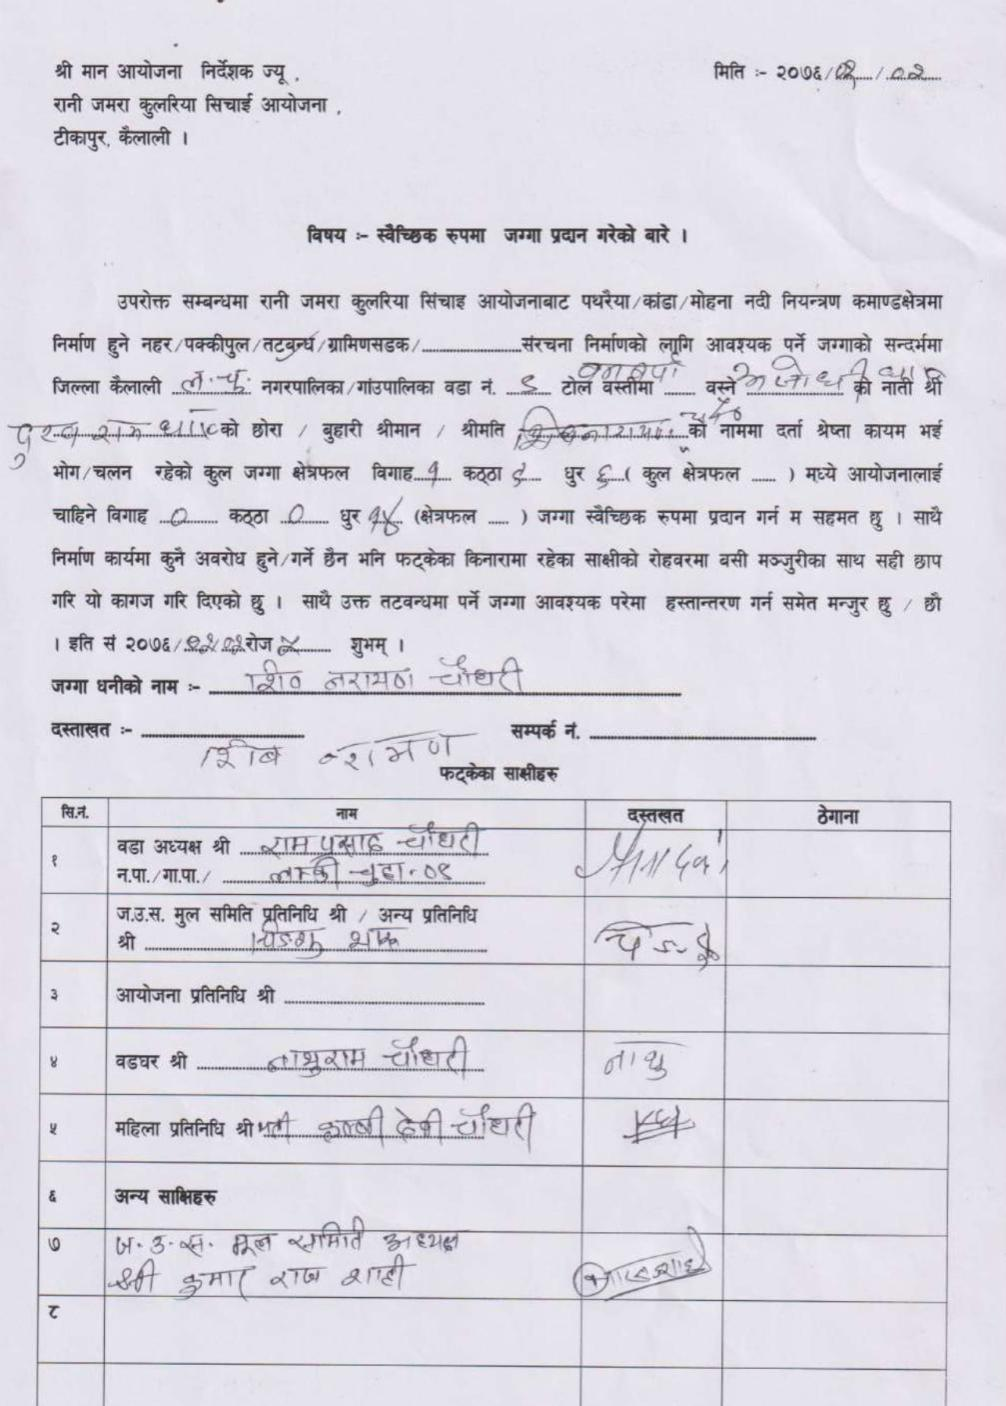 श्री मान आयोजना निर्देशक ज्यू ,
मिति :- २०७६/०२/०२
रानी जमरा कुलरिया सिचाई आयोजना ,
टीकापुर, कैलाली ।
विषय :- स्वैच्छिक रुपमा जग्गा प्रदान गरेको बारे ।
उपरोक्त सम्बन्धमा रानी जमरा कुलरिया सिंचाइ आयोजनाबाट पथरैया/कांडा/मोहना नदी नियन्त्रण कमाण्डक्षेत्रमा
निर्माण हुने नहर/पक्कीपुल/तटबन्ध/ग्रामिणसडक/....................संरचना निर्माणको लागि आवश्यक पर्ने जग्गाको सन्दर्भमा
जिल्ला कैलाली ल.चु. नगरपालिका/गांउपालिका वडा नं. ९ टोल वस्तीमा ...... वस्ने अजोधी था को नाती श्री
राम को छोरा / बुहारी श्रीमान / श्रीमति शिवनारायण को नाममा दर्ता श्रेष्ता कायम भई
भोग/चलन रहेको कुल जग्गा क्षेत्रफल विगाह १ कठ्ठा ८ धुर ६ ( कुल क्षेत्रफल ...... ) मध्ये आयोजनालाई
चाहिने विगाह ० कठ्ठा ० धुर १४ (क्षेत्रफल ..... ) जग्गा स्वैच्छिक रुपमा प्रदान गर्न म सहमत छु । साथै
निर्माण कार्यमा कुनै अवरोध हुने/गर्ने छैन भनि फट्केका किनारामा रहेका साक्षीको रोहवरमा वसी मञ्जुरीका साथ सही छाप
गरि यो कागज गरि दिएको छु । साथै उक्त तटवन्धमा पर्ने जग्गा आवश्यक परेमा हस्तान्तरण गर्न समेत मन्जुर छु / छौ
। इति सं २०७६/०२/०२ रोज ५ शुभम् ।
जग्गा धनीको नाम :- शिव नरायण चौधरी
दस्ताखत :- सम्पर्क नं.
शिव नरायण
फट्केका साक्षीहरु
सि.नं. नाम दस्तखत ठेगाना
१ वडा अध्यक्ष श्री राम प्रसाद चौधरी
न.पा./गा.पा./ लम्की चुहा-०९
२ ज.उ.स. मुल समिति प्रतिनिधि श्री / अन्य प्रतिनिधि
श्री
३ आयोजना प्रतिनिधि श्री
४ वडघर श्री नाथुराम चौधरी नाथु
५ महिला प्रतिनिधि श्रीमती देवी चौधरी
६ अन्य साक्षिहरु
७ ज.उ.स. मूल समिति अध्यक्ष
श्री कुमार राज शाही
८